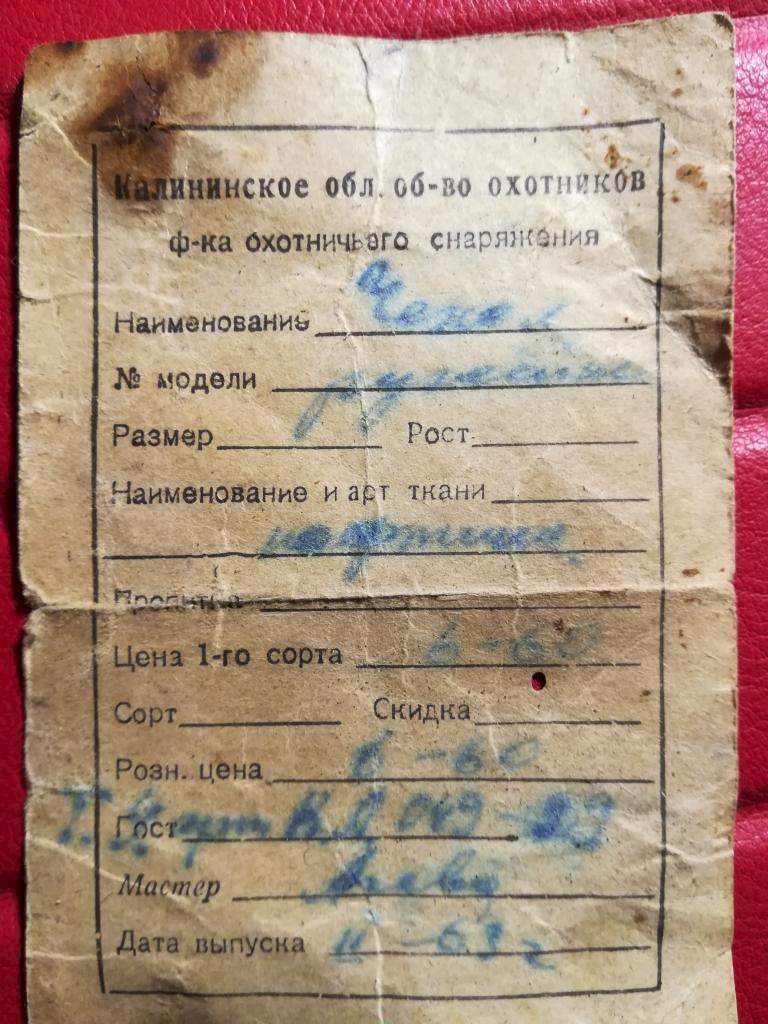 Калининское обл. об-во охотников
ф-ка охотничьего снаряжения
Наименование Чехол
№ модели ружейный
Размер Рост
Наименование и арт ткани
Пропитка
Цена 1-го сорта 6-60
Сорт Скидка
Розн. цена 6-60
Гост
Мастер
Дата выпуска II-63 г